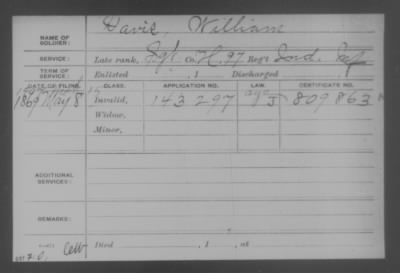 NAME OF SOLDIER: Davis, William
SERVICE: Late rank, Sgt. Co. H, 97 Reg't Ind. Inf
TERM OF SERVICE: Enlisted , 1 Discharged
DATE OF FILING. CLASS. APPLICATION NO. LAW. CERTIFICATE NO.
1869 May 8 Invalid, 143 297 J 809 863
Widow,
Minor,
ADDITIONAL SERVICES:
REMARKS:
Died , 1 , at